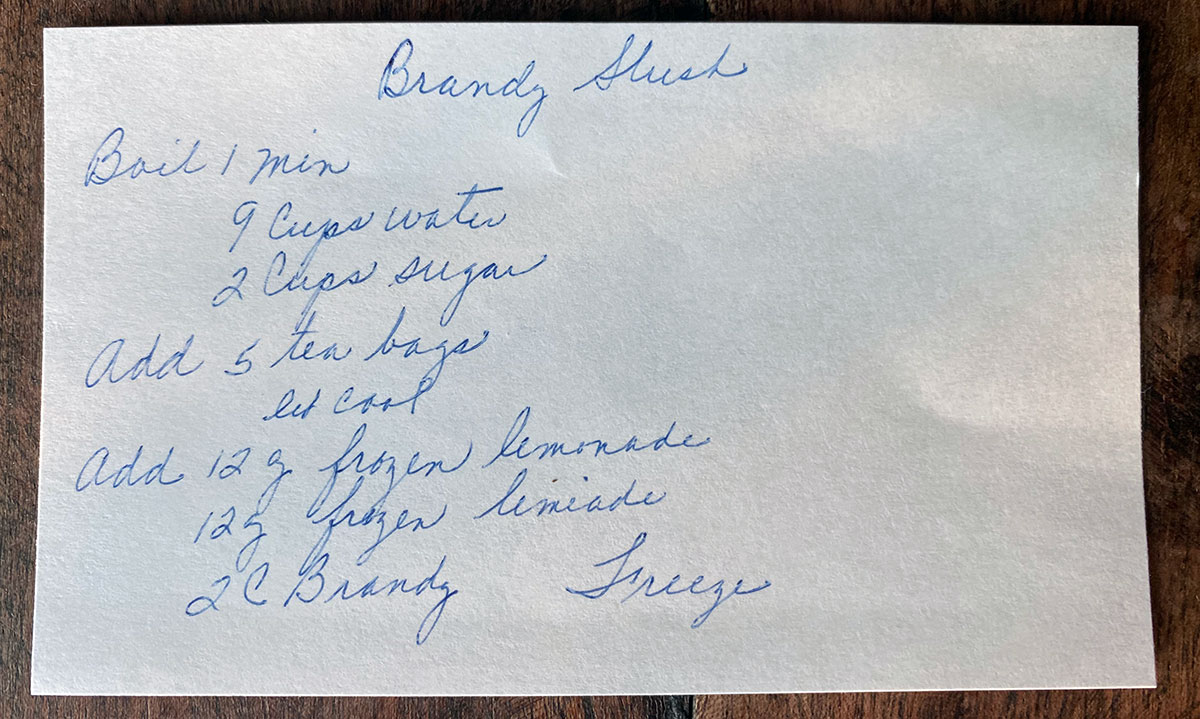 Brandy Slush
Boil 1 min
9 Cups water
2 Cups sugar
Add 5 tea bags
let cool
Add 12 z frozen lemonade
12 z frozen limiade
2 C Brandy Freeze